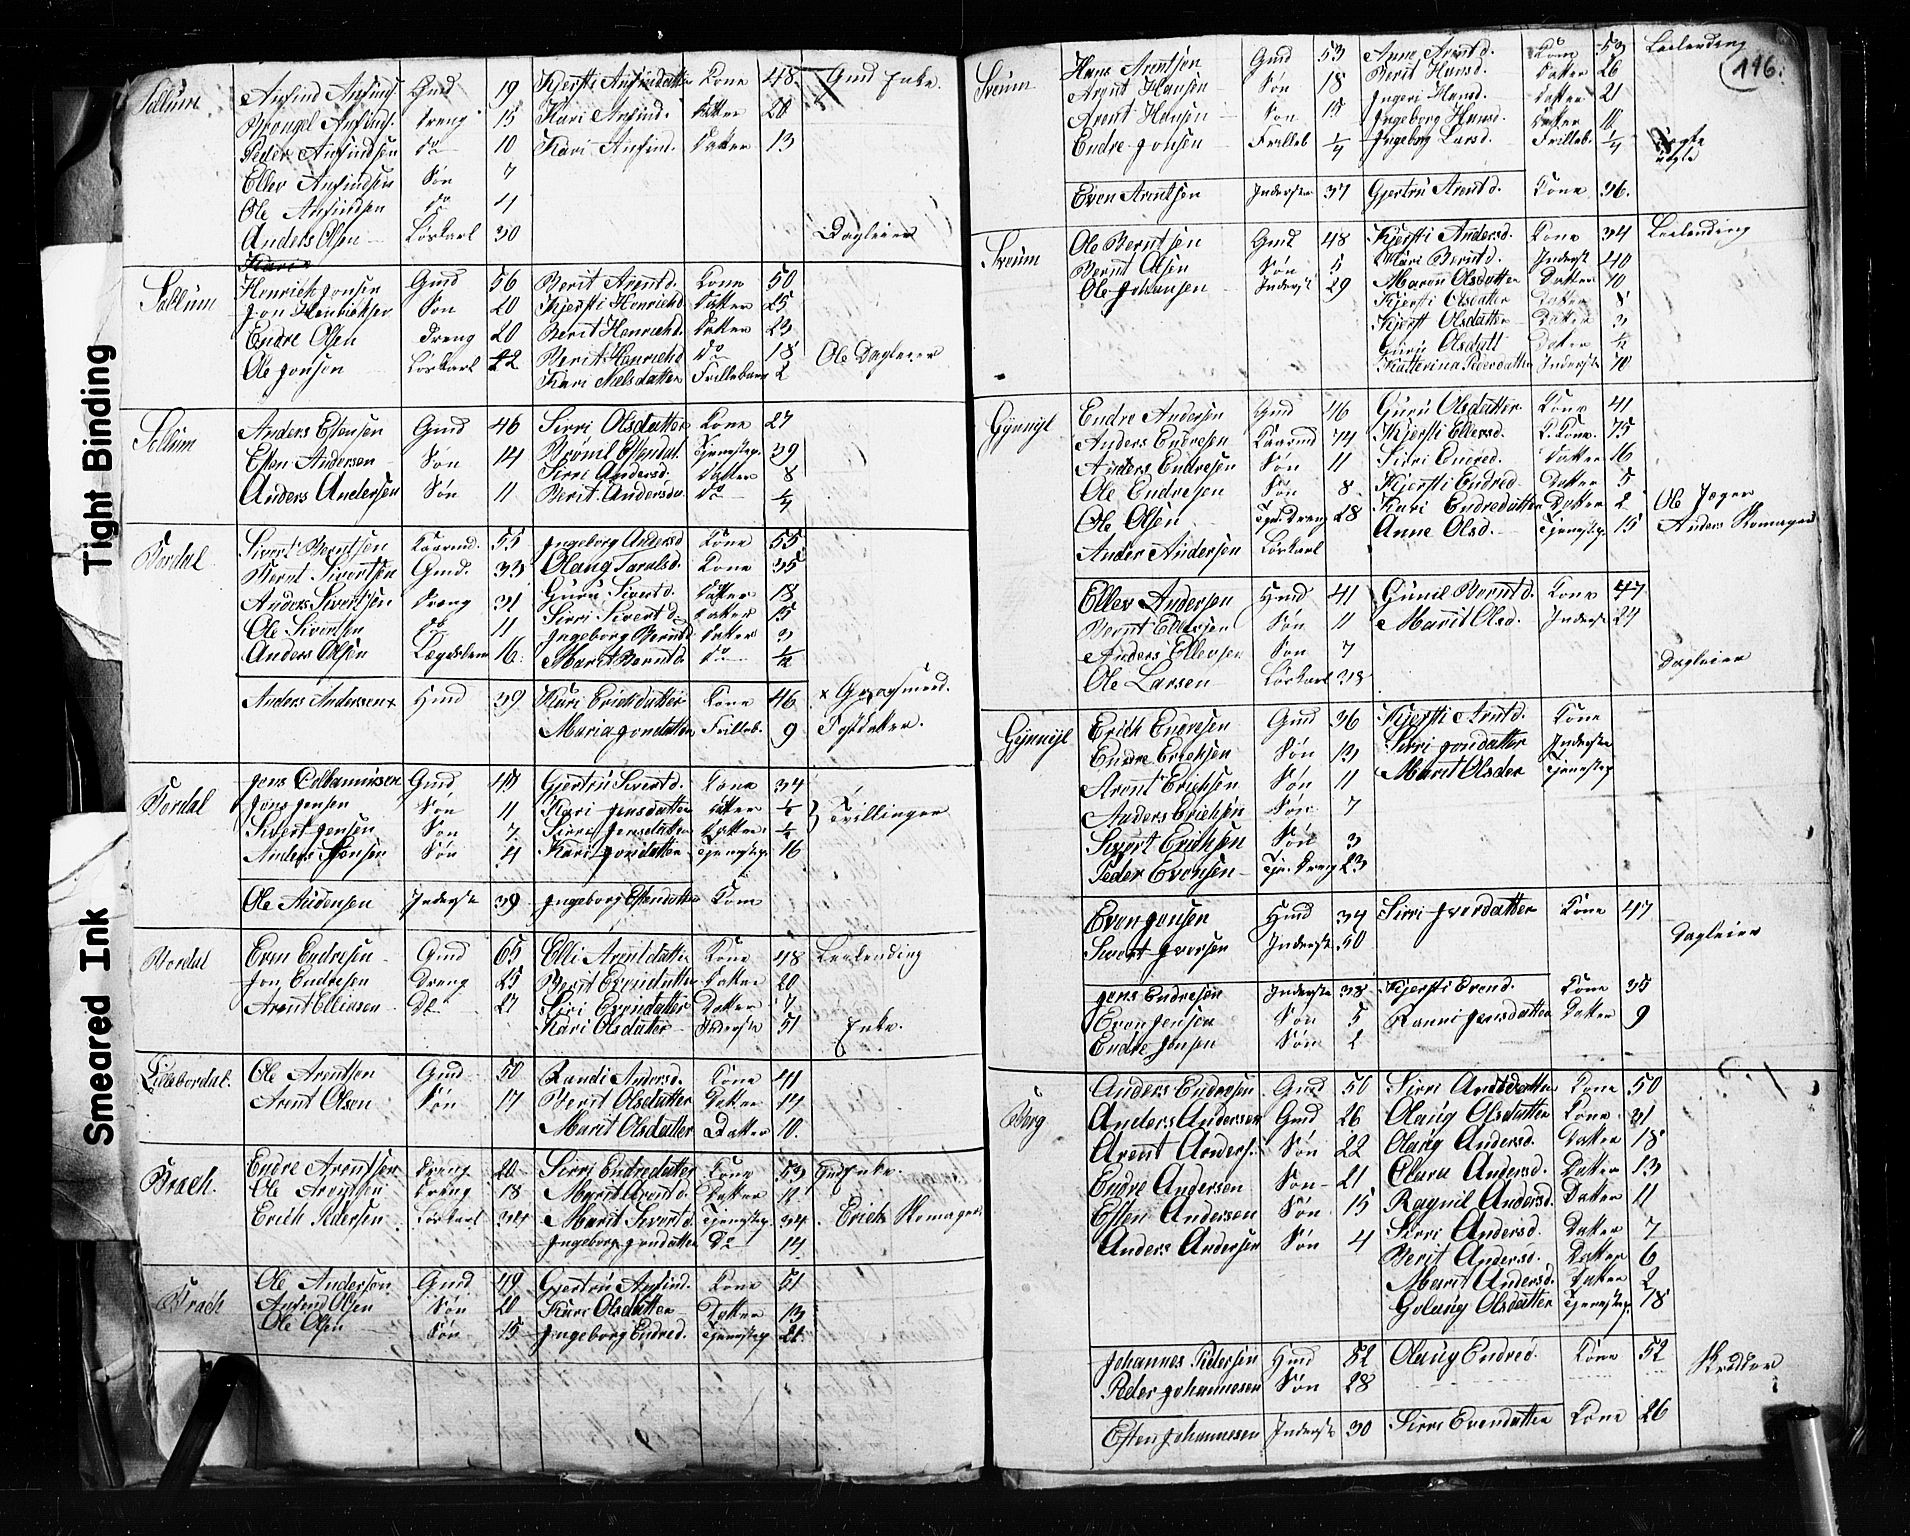 Tight Binding
Smeared Ink
Sollum Anfind Anfinds. Gmd 19 Kjersti Anfindsdatter Kone 48 Gmd Enke.
Brongel Anfinds. Dreng 15 Kari Anfind. Datter 20
Peder Anfindsen do 10 Kari Anfind. Datter 13
Ellev Anfindsen Søn 7
Ole Anfindsen do 4
Anders Olsen Løskarl 30 Dagleier
Sollum Henrich Jonsen Gmd 56 Berit Arentd. Kone 50
Jon Henrichsen Søn 20 Kjersti Henrichd. Datter 25
Endre Olsen Dreng 20 Berit Henrichd. Datter 23
Ole Jonsen Løskarl 42 Berit Henrichd do 18 Ole Dagleier
Kari Nielsdatter Frillebarn 2
Sollum Anders Estensen Gmd 46 Sirri Olsdatter Kone 27
Esten Andersen Søn 14 Estendat. Tjenestep. 39
Sirri Andersd. Datter 8
Anders Andersen Søn 11 Berit Andersd. do
Bordal Sivert Berntsen Kaarmd. 55 Ingeborg Andersd Kone 55
Bernt Sivertsen Gmd. 33 Olaug Kone 35
Anders Sivertsen Dreng 31 Guru Sivertd. Datter 18
Ole Sivertsen do 11 Sirri Sivertd. Datter 15
Ingeborg Berntd Datter 3
Anders Olsen Lægdsbarn 16 Marit Berntd. do
Anders Andersen x Hmd 39 Kari Erichsdatter Kone 46 x
Maria Jonsdatter Frilleb. 9 Fostdatter.
Bordal Jens Gmd 47 Gjertru Sivertd. Kone 34
Jens Jensen Søn 11 Kari Jensdatter Datter } Tvillinger
Sivert Jensen Søn 7 Sirri Jensdatter Datter
Anders Jensen Søn 4 Kari Jonsdatter Tjenestep. 16
Ole Audensen Inderst 39 Ingeborg Estendatter Kone
Bordal Even Endresen Gmd 65 Elli Arentdatter Kone 48 Leelending
Jon Endresen Dreng 25 Berit Evendatter Datter 20
Arent Ellevsen Do 27 Siri Evendatter Datter 7
Kari Olsdatter Inderst 51 Enke.
Lillebordal. Ole Arentsen Gmd 50 Randi Andersd. Kone 41
Arent Olsen Søn 17 Berit Olsdatter Datter 14
Marit Olsdatter Datter 10.
Brach. Endre Arentsen Dreng 20 Sirri Endredatter Kone 53 Gmds Enke.
Ole Arentsen Dreng 18 Marit Arentd. Datter 12
Erich Pedersen Løskarl 34 Marit Sivertd. Tjenestep. 34 Erich Skomager
Ingeborg Jonsdatter Do 14
Brach Ole Andersen Gmd 49 Gjertru Anfind. Kone 51
Anfind Olsen Søn 20 Kari Olsdatter Datter 13
Ole Olsen Søn 15 Ingeborg Endred. Tjenestep. 21
146.
Sveum Hans Arentsen Gmd 53 Anne Arentd. Kone 53 Leelending
Arent Hansen Søn 18 Berit Hansd. Datter 26
Arent Hansen Søn 15 Ingeri Hansd. Datter 21
Ingeborg Hansd. Datter
Endre Jonsen Frilleb Ingeborg Larsd. Frilleb.
Even Arentsen Inderst 37 Gjertru Arentd. Kone 36.
Sveum Ole Berntsen Gmd 48 Kjersti Andersd. Kone 34 Leelending
Bernt Olsen Søn 5 Kari Berntd. Inderst 40
Ole Johansen Inderst 29 Maren Olsdatter Datter 10
Kjersti Olsdatter Datter 8
Kjersti Olsdatter Datter 3
Guru Olsdatt Datter
Katterina Pedersdatter Inderst 70
Gynnyl Endre Andersen Gmd 46 Guru Olsdatter Kone 41
Anders Endresen Kaarmd 74 Kjersti Ellevsd. K. Kone. 75
Anders Endresen Søn 11 Sirri Endred. Datter 16
Ole Endresen Søn 8 Kjersti Endred Datter 5
Ole Olsen Tjn. Dreng 28 Kari Endredatter Datter 2 Ole Jæger
Ander Andersen Løskarl Anne Olsd. Tjenestep. 15 Anders Skomager
Ellev Andersen Hmd 41 Gunil Berntd. Kone 47
Bernt Ellevsen Søn 11 Marit Olsd. Inderst 24
Anders Ellevsen Søn 7
Ole Larsen Løskarl 38 Dagleier
Gynnyl Erich Endresen Gmd 36 Kjersti Arentd. Kone
Endre Erichsen Søn 13 Sirri Jonsdatter Inderste
Arent Erichsen Søn 11 Marit Olsdter Tjenestep
Anders Erichsen Søn 7
Sivert Erichsen Søn 3
Peder Evensen Tjn. Dreng 23
Even Jensen Hmd 34 Sirri Iversdatter Kone 47
Sivert Iversen Inderst 50 Dagleier
Jens Endresen Inderste 38 Kjersti Evend. Kone 35
Even Jensen Søn 5 Ranni Jensdatter Datter 9
Endre Jensen Søn 2
Berg Anders Endresen Gmd 50 Sirri Kone 50
Anders Andersen Gmd 26 Olaug Olsdatter Kone 31
Arent Anders. Søn 22 Olaug Andersd. Datter 18
Endre Andersen Søn 21 Clara Andersd. Datter 13
Esten Andersen Søn 15 Ragnil Andersd. Datter 11
Anders Andersen Søn 4 Sirri Andersd. Datter 7
Berit Andersd. Datter 6
Marit Andersd. Datter 2
Golaug Olsdatter Tjenestep. 18
Johannes Pedersen Hmd 52 Olaug Endred. Kone 52 Skredder
Peder Johannesen Søn 28
Esten Johannesen Inderst 30 Sirri Evendatter Kone 26